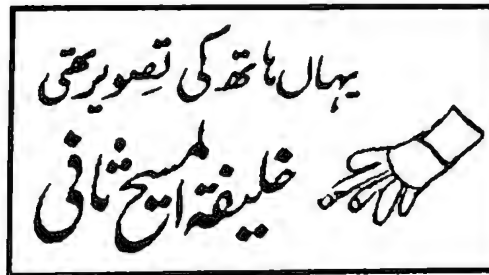 یہاں ہاتھ کی تصویر تھی
خلیفۃ المسیح ثانی